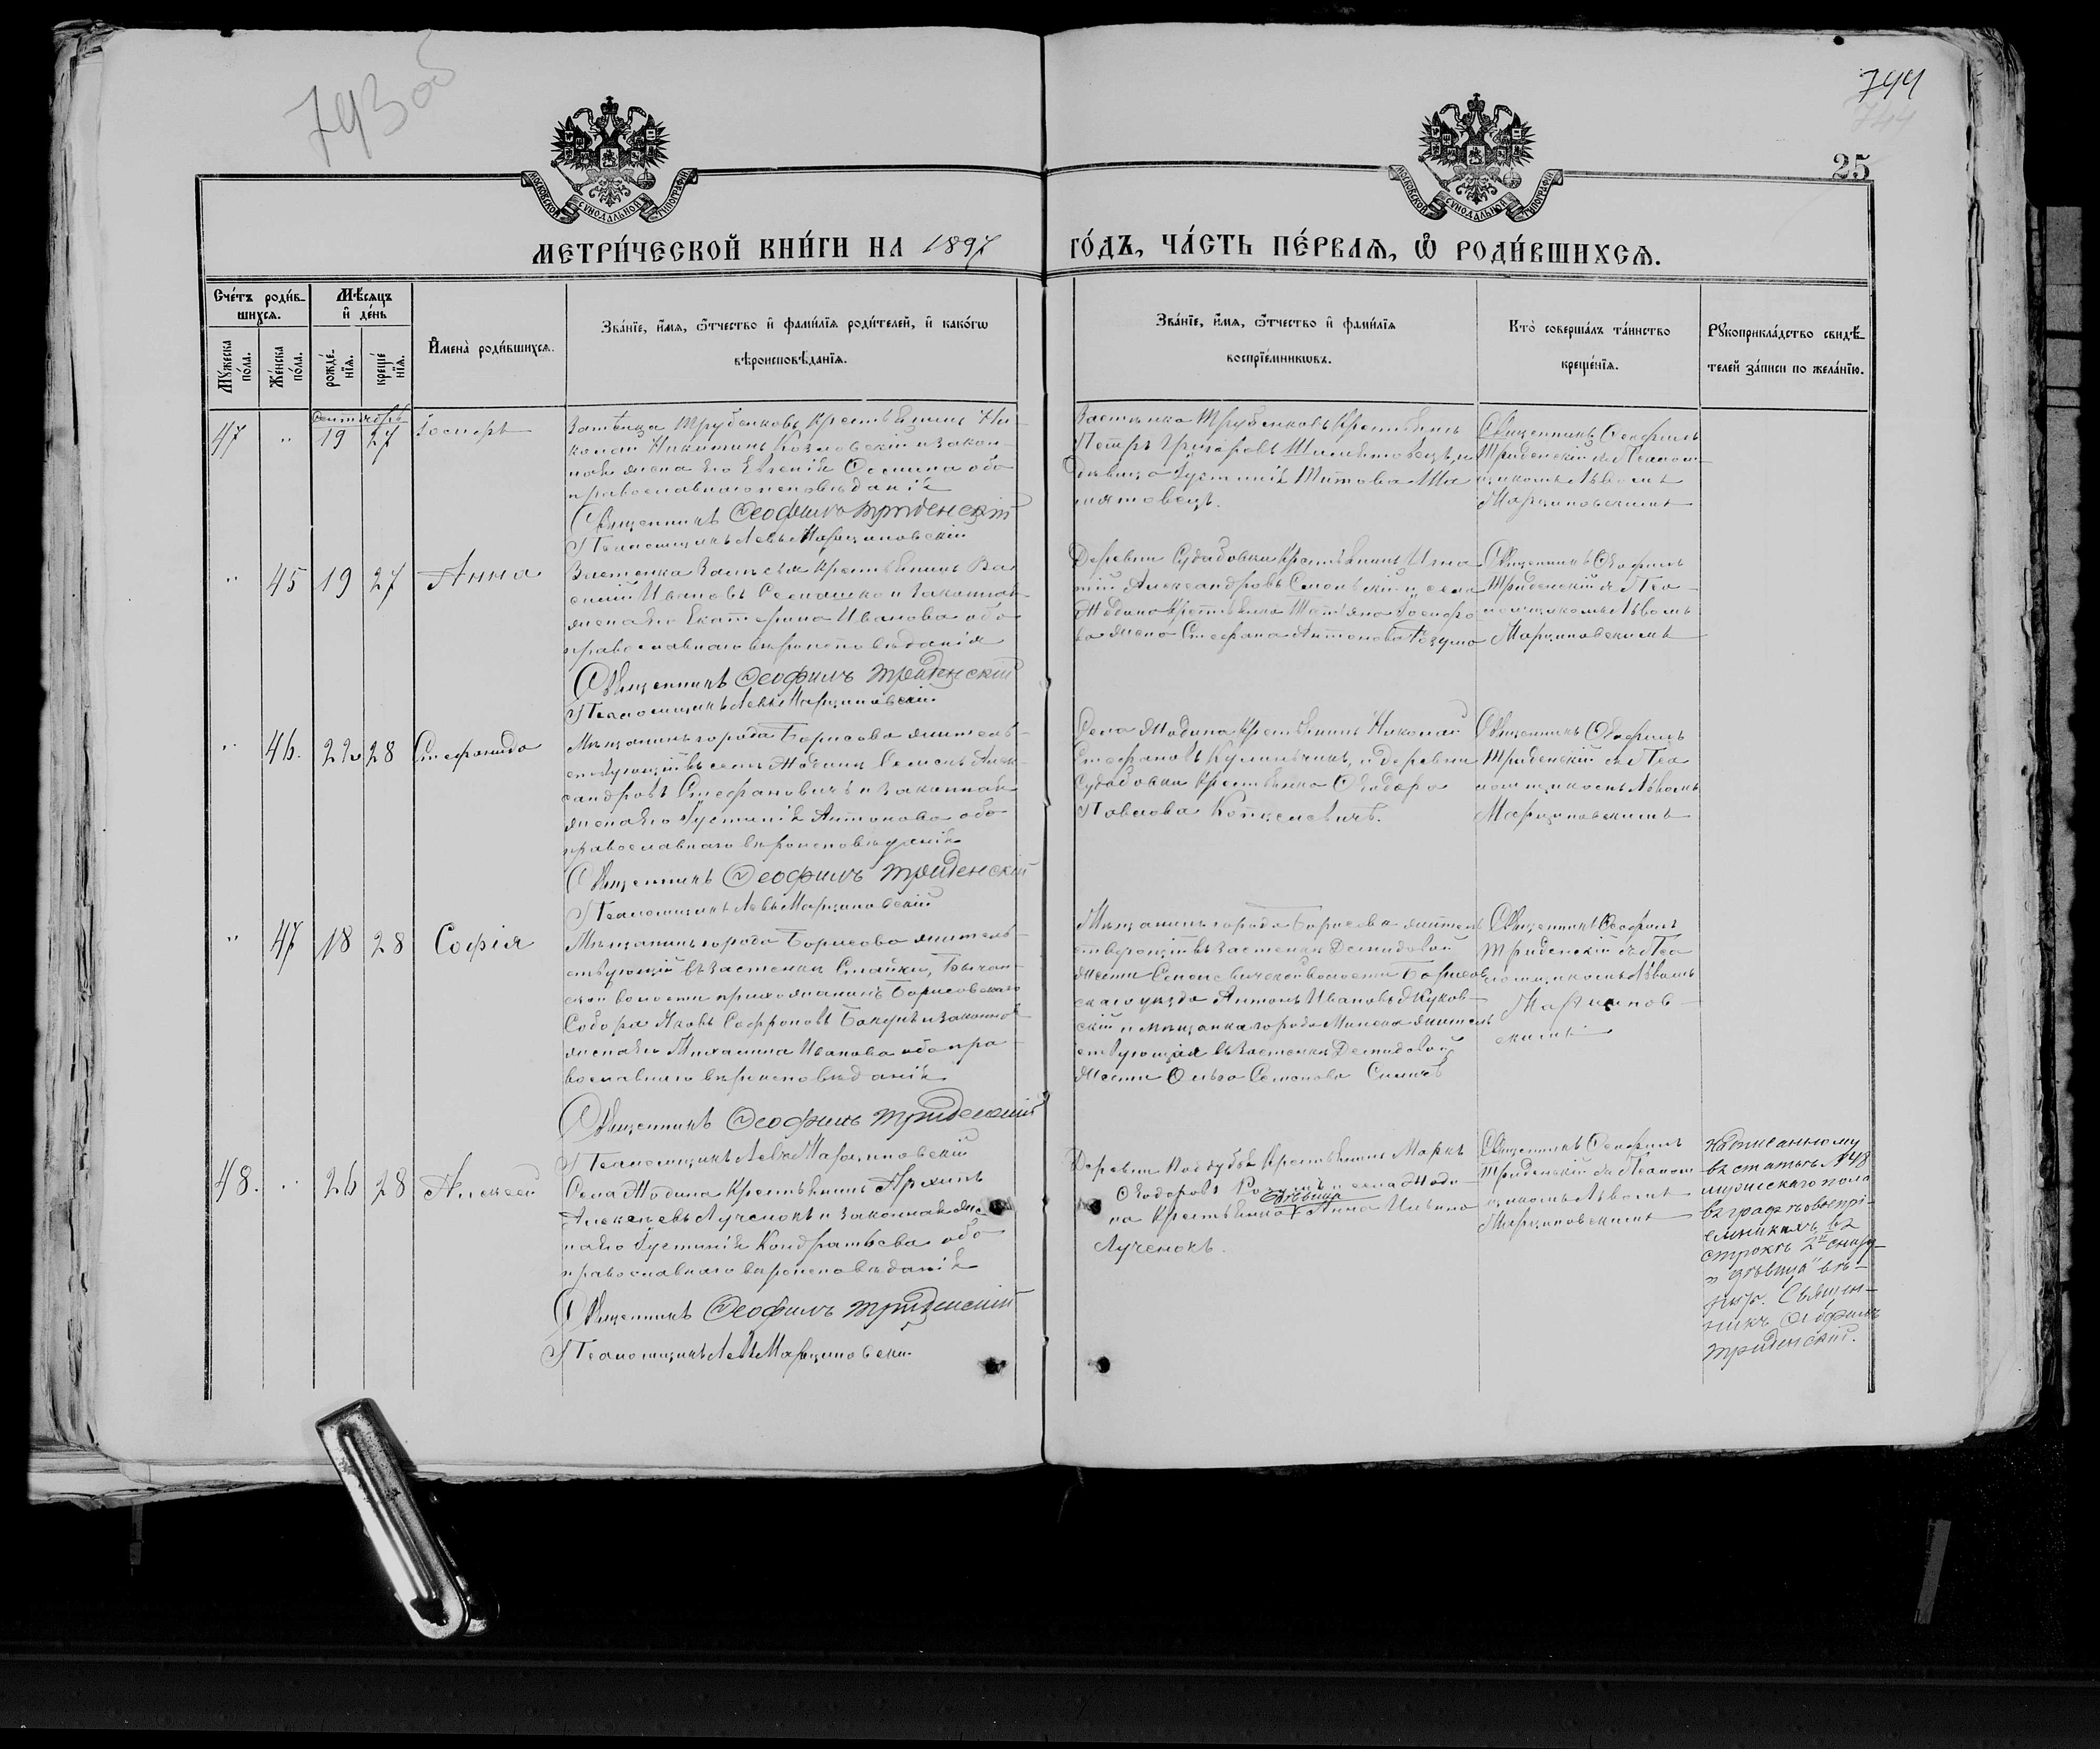 793об
794
744
25
МОСКОВСКОЙ СѴНОДАЛЬНОЙ ТИПОГРАФІИ
МОСКОВСКОЙ СѴНОДАЛЬНОЙ ТИПОГРАФІИ
МЕТРИ́ЧЕСКОЙ КНИ́ГИ НА 1897
ГО́ДЪ, ЧА́СТЬ ПЕ́РВАѦ, Ѡ РОДИ́ВШИХСѦ.
Сче́тъ роди́в-
шихсѧ.
Мѣ́сѧцъ
и де́нь
Мꙋ́жеска по́ла.
Же́нска по́ла.
рожде́-нїѧ.
креще́нїѧ.
И҆мена̀ роди́вшихсѧ.
Зва́нїе, и҆́мѧ, ѻ҆́тчество и҆ фами́лїѧ роди́телей, и҆ како́гѡ
вѣроисповѣ́данїѧ.
Зва́нїе, и҆́мѧ, ѻ҆́тчество и҆ фами́лїѧ
воспрїе́мникѡвъ.
Кто̀ соверша́лъ та́инство
креще́нїѧ.
Рꙋкоприкла́дство свидѣ́-
телей за́писи по жела́нїю.
Сентябрь
47 " 19 27
Застѣнка Трубенковъ Крестьянинъ Ни-
Никитинъ Козловскій и закон-
ная жена его Евгенія Осипова оба
православнаго исповѣданія
Священникъ Ѳеофилъ Тризденскій
Псаломщикъ Левъ Марциновскій
Застѣнка Трубенковъ Крестьянинъ
Петръ Григоровъ и
дѣвица Іустинія Титова
Священникъ Ѳеофилъ
Тризденскій съ Псалом-
щикомъ Львомъ
Марциновскимъ
" 45 19 27 Анна
Застенка Крестьянинъ Ва
силій Ивановъ и законная
жена его Екатерина Иванова оба
православнаго вѣроисповѣданія
Священникъ Ѳеофилъ Тризденскій
Псаломщикъ Левъ Марциновскій
Деревни Судобовки Крестьянинъ Игна
тій Александровъ и села
Жодина Крестьянка Татьяна
ва жена Стефана Антонова Розума
Священникъ Ѳеофилъ
Тризденскій съ Пса-
ломщикомъ Львомъ
Марциновскимъ
" 46. 22 28 Стефанида
Мѣщанинъ города Борисова житель-
ствующій въ селѣ Жодинѣ Семенъ Алек-
сандровъ Стефановичъ и законная
жена его Іустинія Антонова оба
православнаго вѣроисповѣданія
Священникъ Ѳеофилъ Тризденскій
Псаломщикъ Левъ Марциновскій
Села Жодина Крестьянинъ Николай
Стефановъ и деревни
Судобовки Крестьянка Ѳеодора
Павлова
Священникъ Ѳеофилъ
Тризденскій съ Пса
ломщикомъ Львомъ
Марциновскимъ
" 47 18 28 Софія
Мѣщанинъ города Борисова житель-
ствующій въ застенкѣ Стайки,
ской волости прихожанинъ Борисовскаго
Собора Яковъ Софроновъ Бакунъ и законная
жена его Михалина Иванова оба пра-
вославнаго вѣроисповѣданія
Священникъ Ѳеофилъ Тризденскій
Псаломщикъ Левъ Марциновскій
Мѣщанинъ города Борисова житель
ствующій въ застенкѣ Демидовой
волости Борисов
скаго уѣзда Антонъ Ивановъ Жуков-
скій и мѣщанка города Минска житель
ствующая въ застенкѣ Демидовой
Ольга Семенова
Священникъ Ѳеофилъ
Тризденскій съ Пса
ломщикомъ Львомъ
Марцинов-
скимъ
48. " 26 28 Алексей
Села Жодина Крестьянинъ Архипъ
Алексеевъ Лученокъ и законная же-
на его Іустинія Кондратьева оба
православнаго вѣроисповѣданія
Священникъ Ѳеофилъ Тризденскій
Псаломщикъ Левъ Марциновскій
Деревни Крестьянинъ Маркъ
Ѳеодоровъ и села Жоди-
дѣвица
на Крестьянка Анна Ильина
Лученокъ.
Священникъ Ѳеофилъ
Тризденскій съ Псалом
щикомъ Львомъ
Марциновскимъ
въ статьѣ №48
мужескаго пола
въ графѣ о воспрі-
емникахъ, въ
строкѣ 2й снизу
"дѣвица" вѣ-
рно. Священ-
никъ Ѳеофилъ
Тризденскій.